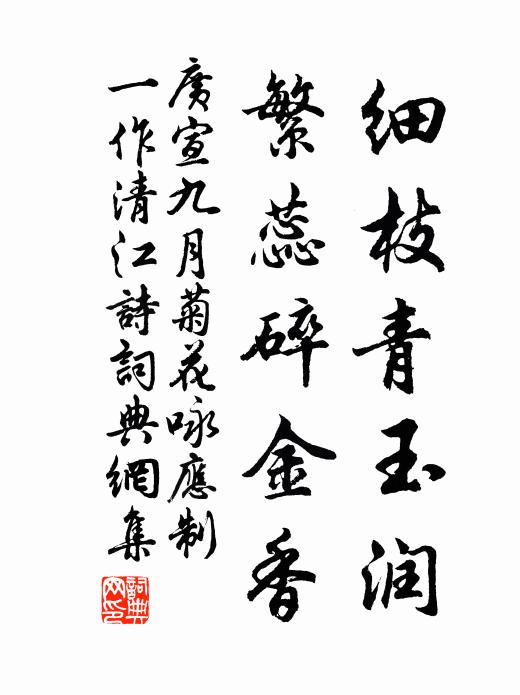 细枝青玉润
繁蕊碎金香
廣宣九月菊花咏應制
一作清江詩詞典網集
詞典网印